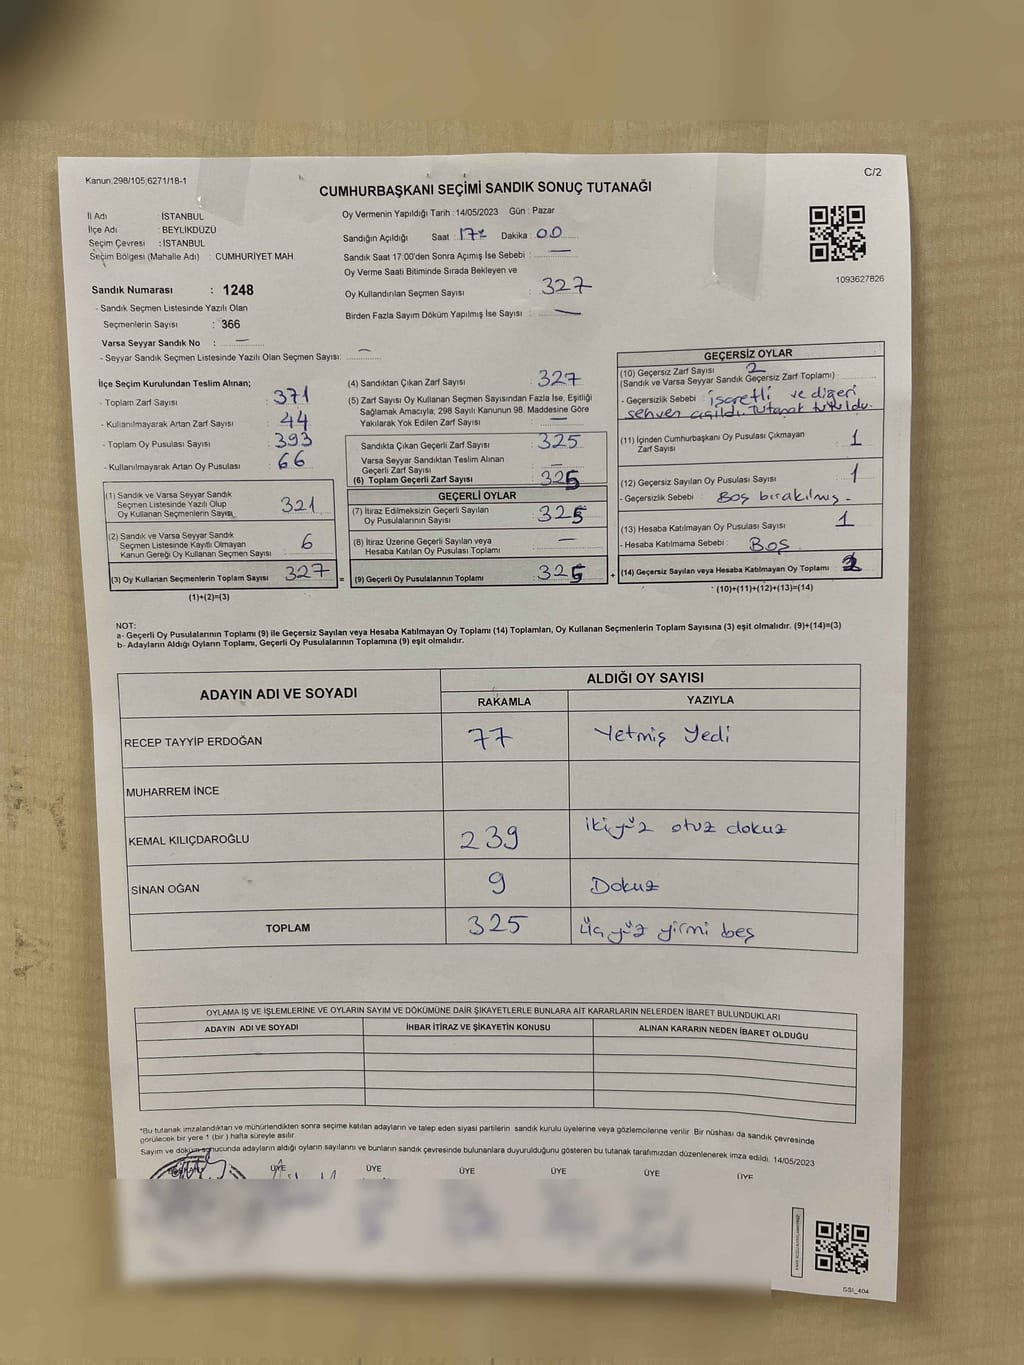 Kanun:298/105;6271/18-1
C/2
CUMHURBAŞKANI SEÇİMİ SANDIK SONUÇ TUTANAĞI
İl Adı : İSTANBUL
İlçe Adı : BEYLİKDÜZÜ
Seçim Çevresi : İSTANBUL
Seçim Bölgesi (Mahalle Adı) : CUMHURİYET MAH.
Sandık Numarası : 1248
- Sandık Seçmen Listesinde Yazılı Olan
Seçmenlerin Sayısı : 366
Varsa Seyyar Sandık No : —
- Seyyar Sandık Seçmen Listesinde Yazılı Olan Seçmen Sayısı: —
Oy Vermenin Yapıldığı Tarih : 14/05/2023 Gün : Pazar
Sandığın Açıldığı Saat : 17 Dakika : 00
Sandık Saat 17:00'den Sonra Açımış İse Sebebi : —
Oy Verme Saati Bitiminde Sırada Bekleyen ve
Oy Kullandırılan Seçmen Sayısı : 327
Birden Fazla Sayım Döküm Yapılmış İse Sayısı : —
1093627826
İlçe Seçim Kurulundan Teslim Alınan;
- Toplam Zarf Sayısı : 371
- Kullanılmayarak Artan Zarf Sayısı : 44
- Toplam Oy Pusulası Sayısı : 393
- Kullanılmayarak Artan Oy Pusulası : 66
(1) Sandık ve Varsa Seyyar Sandık
Seçmen Listesinde Yazılı Olup
Oy Kullanan Seçmenlerin Sayısı 321
(2) Sandık ve Varsa Seyyar Sandık
Seçmen Listesinde Kayıtlı Olmayan
Kanun Gereği Oy Kullanan Seçmen Sayısı 6
(3) Oy Kullanan Seçmenlerin Toplam Sayısı 327 =
(1)+(2)=(3)
(4) Sandıktan Çıkan Zarf Sayısı : 327
(5) Zarf Sayısı Oy Kullanan Seçmen Sayısından Fazla İse, Eşitliği
Sağlamak Amacıyla; 298 Sayılı Kanunun 98. Maddesine Göre
Yakılarak Yok Edilen Zarf Sayısı : —
Sandıkta Çıkan Geçerli Zarf Sayısı : 325
Varsa Seyyar Sandıktan Teslim Alınan
Geçerli Zarf Sayısı : —
(6) Toplam Geçerli Zarf Sayısı : 325
GEÇERLİ OYLAR
(7) İtiraz Edilmeksizin Geçerli Sayılan
Oy Pusulalarının Sayısı : 325
(8) İtiraz Üzerine Geçerli Sayılan veya
Hesaba Katılan Oy Pusulası Toplamı : —
(9) Geçerli Oy Pusulalarının Toplamı : 325 +
GEÇERSİZ OYLAR
(10) Geçersiz Zarf Sayısı : 2
(Sandık ve Varsa Seyyar Sandık Geçersiz Zarf Toplamı)
- Geçersizlik Sebebi : işaretli ve diğeri
sehven açıldı. Tutanak tutuldu.
(11) İçinden Cumhurbaşkanı Oy Pusulası Çıkmayan
Zarf Sayısı : 1
(12) Geçersiz Sayılan Oy Pusulası Sayısı : 1
- Geçersizlik Sebebi : Boş bırakılmış -
(13) Hesaba Katılmayan Oy Pusulası Sayısı : 1
- Hesaba Katılmama Sebebi : Boş
(14) Geçersiz Sayılan veya Hesaba Katılmayan Oy Toplamı :
(10)+(11)+(12)+(13)=(14)
NOT:
a- Geçerli Oy Pusulalarının Toplamı (9) ile Geçersiz Sayılan veya Hesaba Katılmayan Oy Toplamı (14) Toplamları, Oy Kullanan Seçmenlerin Toplam Sayısına (3) eşit olmalıdır. (9)+(14)=(3)
b- Adayların Aldığı Oyların Toplamı, Geçerli Oy Pusulalarının Toplamına (9) eşit olmalıdır.
ADAYIN ADI VE SOYADI ALDIĞI OY SAYISI
RAKAMLA YAZIYLA
RECEP TAYYİP ERDOĞAN 77 Yetmiş Yedi
MUHARREM İNCE
KEMAL KILIÇDAROĞLU 239 ikiyüz otuz dokuz
SİNAN OĞAN 9 Dokuz
TOPLAM 325 üçyüz yirmi beş
OYLAMA İŞ VE İŞLEMLERİNE VE OYLARIN SAYIM VE DÖKÜMÜNE DAİR ŞİKAYETLERLE BUNLARA AİT KARARLARIN NELERDEN İBARET BULUNDUKLARI
ADAYIN ADI VE SOYADI İHBAR İTİRAZ VE ŞİKAYETİN KONUSU ALINAN KARARIN NEDEN İBARET OLDUĞU
*Bu tutanak imzalandıktan ve mühürlendikten sonra seçime katılan adayların ve talep eden siyasi partilerin sandık kurulu üyelerine veya gözlemcilerine verilir. Bir nüshası da sandık çevresinde
görülecek bir yere 1 (bir ) hafta süreyle asılır.
Sayım ve döküm sonucunda adayların aldığı oyların sayılarını ve bunların sandık çevresinde bulunanlara duyurulduğunu gösteren bu tutanak tarafımızdan düzenlenerek imza edildi. 14/05/2023
ÜYE ÜYE ÜYE ÜYE ÜYE ÜYE
SSI_404